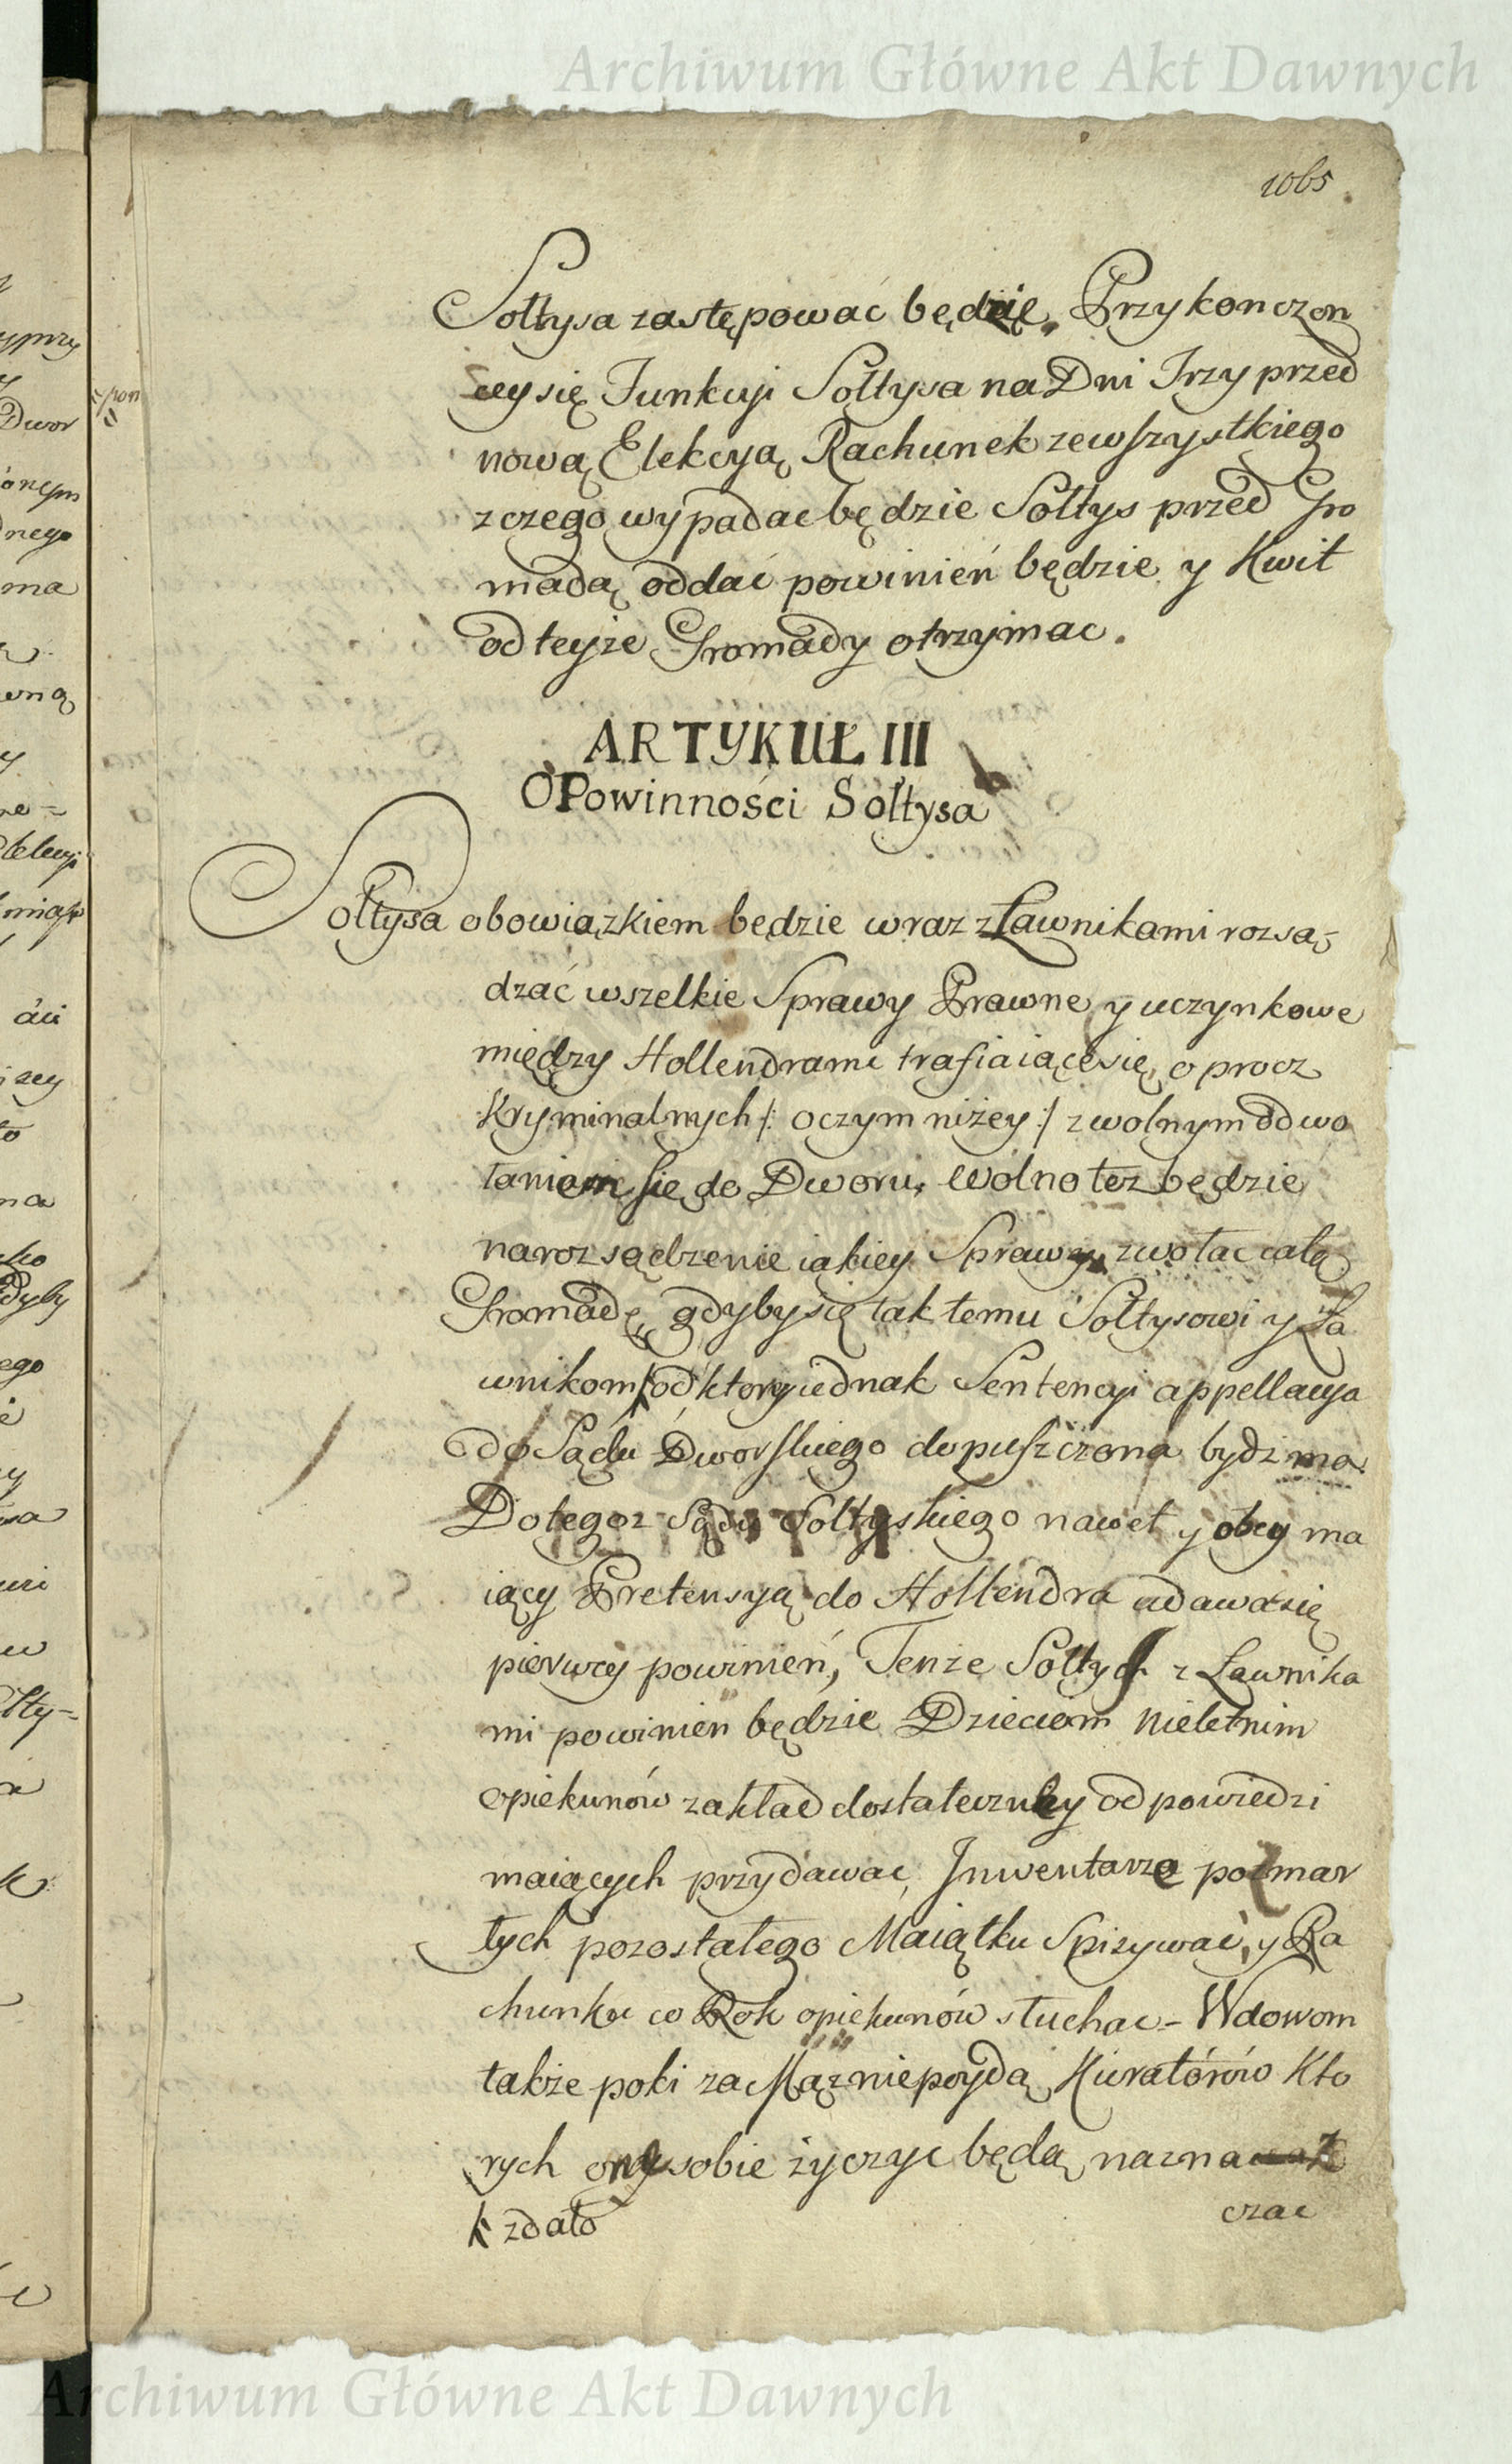 Archiwum Główne Akt Dawnych
1065
Sołtysa zastępować będzie, Przykonczon
cey się Funkcyi Sołtysa na Dni Trzy przed
nową Elekcyą Rachunek zewszystkiego
zczego wypadac będzie Sołtys przed Gro
madą oddać powinień będzie y Kwit
od teyże Gromady otrzymac.
ARTYKUŁ III
O Powinności Sołtysa
Sołtysa obowiązkiem będzie wraz z Ławnikami rozsą-
dzać wszelkie Sprawy Prawne y uczynkowe
między Hollendrami trafiaiące się, oprocz
Kryminalnych /: oczym niżey :/ z wolnym odwo
łaniem się do Dworu, Wolno tez będzie
narozsądzenie iakiey Sprawy zwołac całą
Gromadę, gdyby się tak temu Sołtysowi y Ła
wnikom od ktorey iednak Sentencyi appellacya
do Sądu Dworskiego dopuszczona bydz ma.
Do tegoz Sądu Sołtyskiego nawet y obcy ma
iący Pretensyą do Hollendra udawać się
pierwey powinień, Tenże Sołtys z Ławnika
mi powinień będzie Dzieciom nieletnim
opiekunów zakład dostateczney odpowiedzi
maiących przydawac, Inwentarze po zmar
łych pozostałego Maiątku Spisywać, y Ra
chunku co Rok opiekunów słuchac - Wdowom
także poki za Mąz niepoydą Kuratorów Kto
rych ony sobie życzyc będą nazna
czac
zdało
Archiwum Główne Akt Dawnych